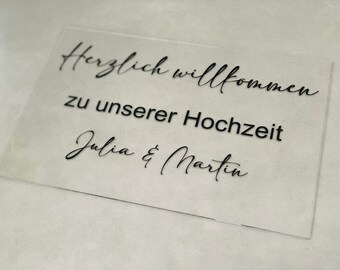 Herzlich willkommen
zu unserer Hochzeit
Julia & Martin